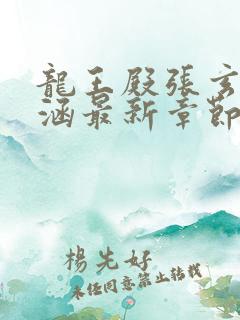 龍王殿張玄
涵最新章節
楊先好
未經同意禁止轉載